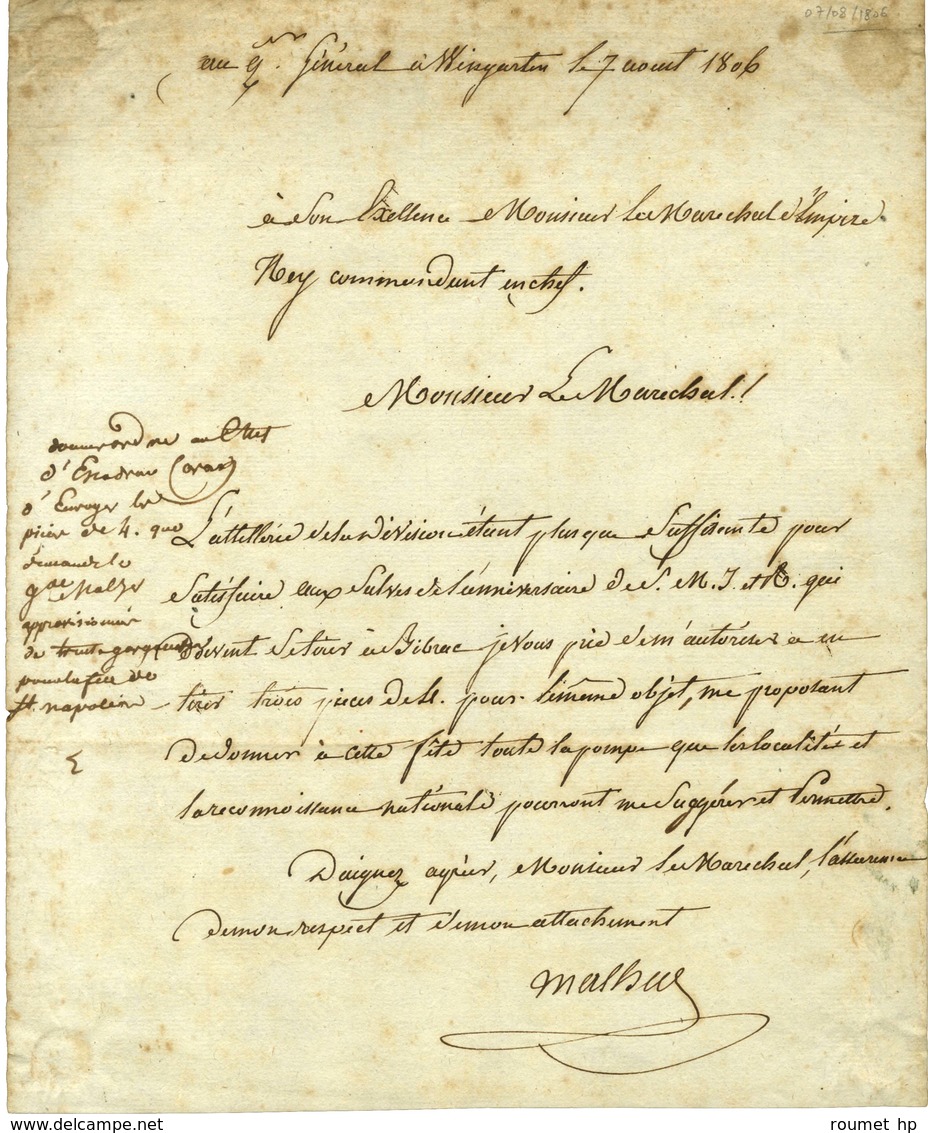 07/08/1806
au q.er Général à Weingarten le 7 aout 1806
à Son Exellence Monsieur le Marechal d'Empire
Ney commandant en chef.
Monsieur Le Maréchal!
donner ordre au Chef
d'Escadron
d'Envoyer les
pièces de 4. que
demande le
g.al Malher
approvisionnés
de trente gargousses
pour la fete de
St. napoléon
L'artillerie de la Division étant plus que Suffisante pour
Satisfaire aux Salves de l'anniversaire de S. M. I. et R. qui
doivent Se tirer à Bibrac je vous prie de m'autoriser a en
tirer trois pieces de 4. pour le même objet, me proposant
de donner à cette fête toute la pompe que les localités et
la reconnoissance nationale pourront me Suggérer et Permettre.
Daignez agréer, Monsieur le Marechal, l'assurance
de mon respect et de mon attachement
Malher
roumet hp